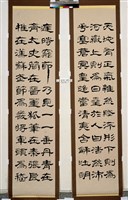 天地有正氣雜然賦流形下則為
河嶽上則為日星於人曰浩然沛
乎塞蒼冥皇路當清夷含和吐明
庭時窮節乃見一一垂丹青在
齊太史簡在晉董狐筆在秦張良
椎在漢蘇武節為嚴將軍頭為